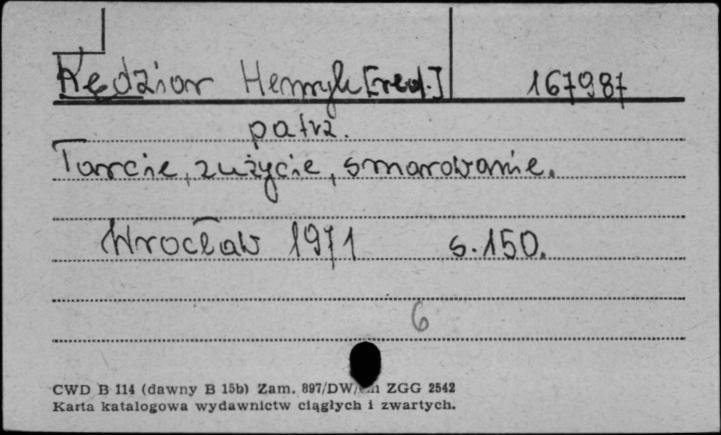 Kędzior Henryk [red.] 167987
patrz.
Tarcie, zużycie, smarowanie.
Wrocław 1971 s. 150.
6
CWD B 114 (dawny B 15b) Zam. 897/DW/ ZGG 2542
Karta katalogowa wydawnictw ciągłych i zwartych.